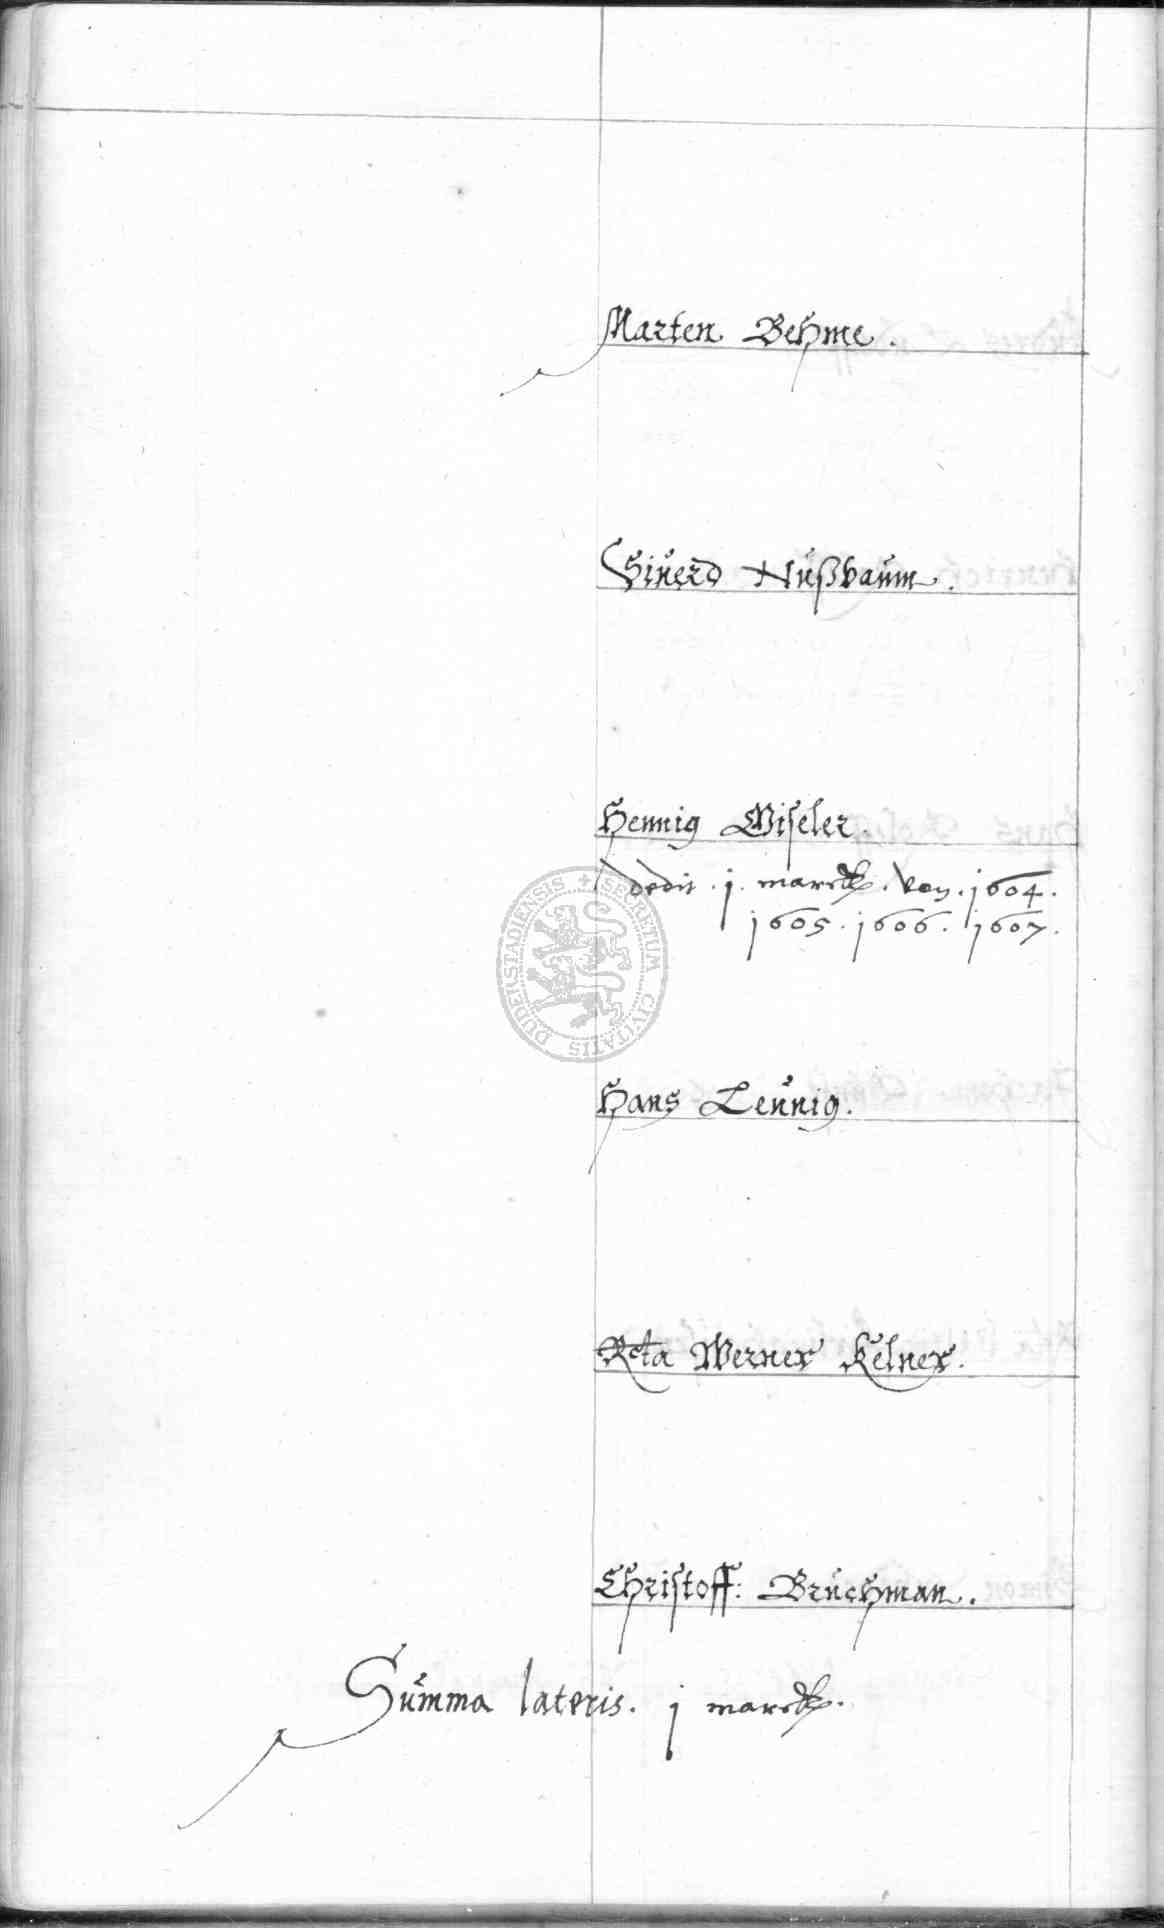 Marten Behme.
Siuerd Nußbaum.
Hennig Wiseler.
dedit . j . marck . von . 1604 .
1605 . 1606 . 1607 .
SECRETUM CIVITATIS DUDERSTADIENSIS
Hans Leunig.
Rcta Werner Kelner.
Christoff: Bruchman.
Summa lateris. j marck.